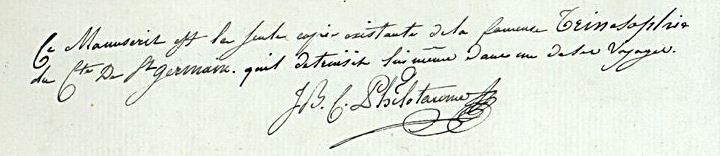 Ce Manuscrit est la seule copie existante de la fameuse Trinosophie
du Cte De St Germain. qu'il detruisit lui même dans un de ses Voyages.
J.B.C. Philotaume